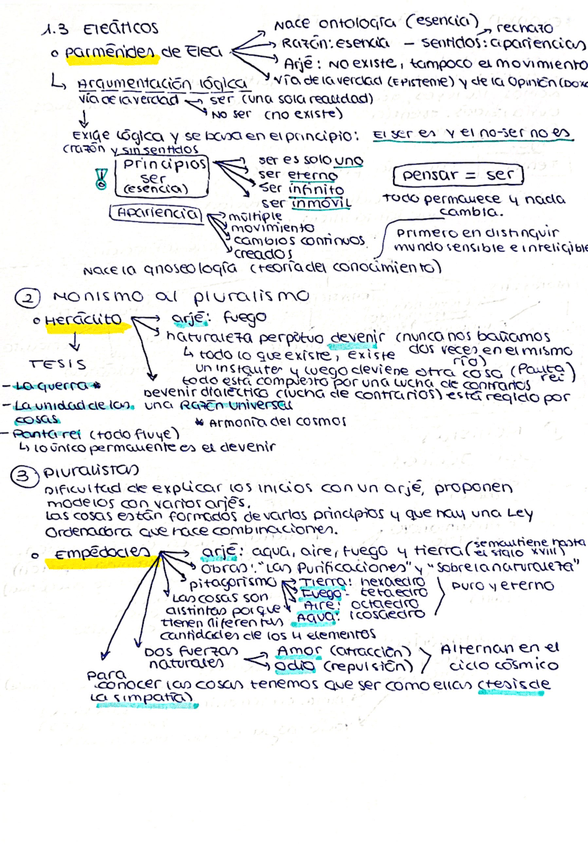 1.3 Eleáticos
Nace ontología (esencia)
o Parménides de Elea
Razón: esencia - sentidos: apariencias
rechazo
Arjé: NO existe, tampoco el movimiento
Vía de la verdad (EPISTEME) y de la Opinión (DOXA
↳ Argumentación lógica
vía de la verdad → ser (una sola realidad)
No ser (no existe)
Exige lógica y se basa en el principio: El ser es y el no-ser no es
(razón y sin sentidos
principios ser (esencia)
ser es solo uno
ser eterno
ser infinito
ser inmóvil
pensar = ser
todo permanece y nada cambia.
Apariencia
múltiple
movimiento
cambios continuos
creados
Primero en distinguir mundo sensible e inteligible
Nace la gnoseología (teoría del conocimiento)
② Monismo al pluralismo
o Heráclito
arjé: fuego
naturaleza perpetuo devenir (nunca nos bañamos dos veces en el mismo río)
↳ todo lo que existe, existe un instante y luego deviene otra cosa (Panta rei)
todo está compuesto por una lucha de contrarios
Devenir dialéctico (lucha de contrarios) está regido por una Razón universal
TESIS
- La guerra *
- La unidad de las cosas
* Armonía del cosmos
- Panta rei (todo fluye)
↳ lo único permanente es el devenir
③ Pluralistas
Dificultad de explicar los inicios con un arjé, proponen
modelos con varios arjés.
Las cosas están formados de varios principios y que hay una Ley
Ordenadora que hace combinaciones.
o Empédocles
arjé: agua, aire, fuego y tierra (se mantiene hasta el siglo XVIII)
obras: "Las Purificaciones" y "sobre la naturaleza"
pitagorismo
Tierra: hexaedro
Fuego: tetaedro
Aire: octaedro
Agua: icosaedro
puro y eterno
Las cosas son
distintas porque
tienen diferentes
cantidades de los 4 elementos
DOS fuerzas naturales
Amor (atracción)
Odio (repulsión)
Alternan en el ciclo cósmico
Para
conocer las cosas tenemos que ser como ellas (tesis de
la simpatía)